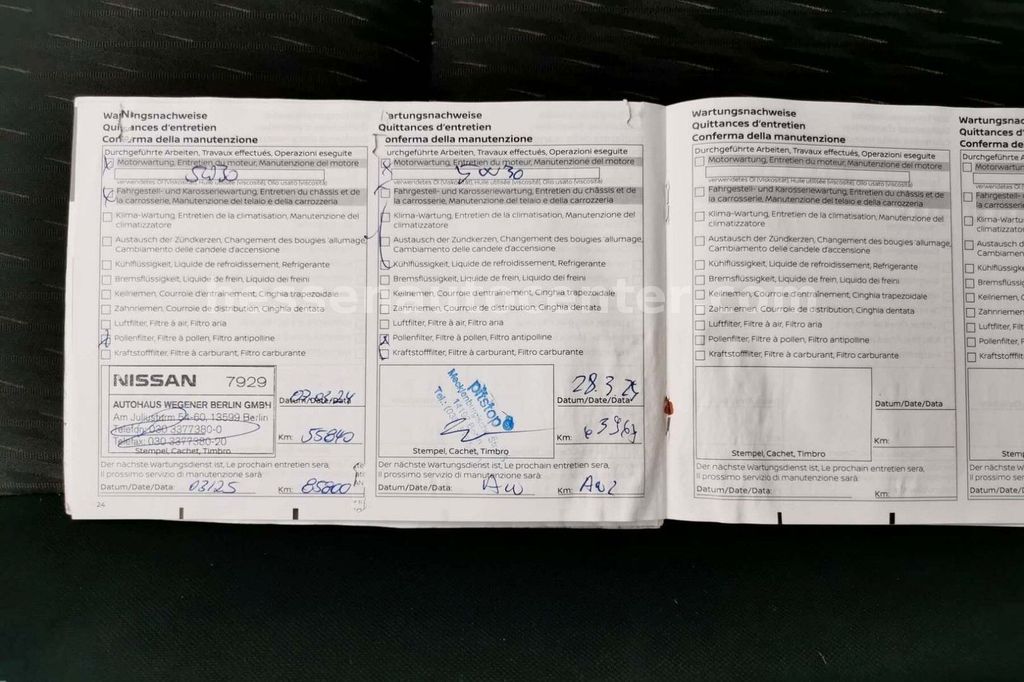 Wartungsnachweise
Quittances d'entretien
Conferma della manutenzione
Durchgeführte Arbeiten, Travaux effectués, Operazioni eseguite
Motorwartung, Entretien du moteur, Manutenzione del motore
5W30
verwendetes Öl (Viskosität), Huile utilisée (viscosité), Olio usato (viscosità)
Fahrgestell- und Karosseriewartung, Entretien du châssis et de
la carrosserie, Manutenzione del telaio e della carrozzeria
Klima-Wartung, Entretien de la climatisation, Manutenzione del
climatizzatore
Austausch der Zündkerzen, Changement des bougies d'allumage,
Cambiamento delle candele d'accensione
Kühlflüssigkeit, Liquide de refroidissement, Refrigerante
Bremsflüssigkeit, Liquide de frein, Liquido dei freini
Keilriemen, Courroie d'entraînement, Cinghia trapezoidale
Zahnriemen, Courroie de distribution, Cinghia dentata
Luftfilter, Filtre à air, Filtro aria
Pollenfilter, Filtre à pollen, Filtro antipolline
Kraftstofffilter, Filtre à carburant, Filtro carburante
NISSAN 7929
AUTOHAUS WEGENER BERLIN GMBH
Am Juliusturm 54-60, 13599 Berlin
Telefon: 030 3377380-0
Telefax: 030 3377380-20
Stempel, Cachet, Timbro
Datum/Date/Data
Km: 55840
Der nächste Wartungsdienst ist, Le prochain entretien sera,
Il prossimo servizio di manutenzione sarà
Datum/Date/Data: 03/25 Km: 85800
24
artungsnachweise
Quittances d'entretien
onferma della manutenzione
urchgeführte Arbeiten, Travaux effectués, Operazioni eseguite
Motorwartung, Entretien du moteur, Manutenzione del motore
5W30
verwendetes Öl (Viskosität), Huile utilisée (viscosité), Olio usato (viscosità)
Fahrgestell- und Karosseriewartung, Entretien du châssis et de
la carrosserie, Manutenzione del telaio e della carrozzeria
Klima-Wartung, Entretien de la climatisation, Manutenzione del
climatizzatore
Austausch der Zündkerzen, Changement des bougies d'allumage,
Cambiamento delle candele d'accensione
Kühlflüssigkeit, Liquide de refroidissement, Refrigerante
Bremsflüssigkeit, Liquide de frein, Liquido dei freini
Keilriemen, Courroie d'entraînement, Cinghia trapezoidale
Zahnriemen, Courroie de distribution, Cinghia dentata
Luftfilter, Filtre à air, Filtro aria
Pollenfilter, Filtre à pollen, Filtro antipolline
Kraftstofffilter, Filtre à carburant, Filtro carburante
pitstop
28.3.25
Datum/Date/Data
Km: 63967
Stempel, Cachet, Timbro
Der nächste Wartungsdienst ist, Le prochain entretien sera,
Il prossimo servizio di manutenzione sarà
Datum/Date/Data: Km:
Wartungsnachweise
Quittances d'entretien
Conferma della manutenzione
Durchgeführte Arbeiten, Travaux effectués, Operazioni eseguite
Motorwartung, Entretien du moteur, Manutenzione del motore
verwendetes Öl (Viskosität), Huile utilisée (viscosité), Olio usato (viscosità)
Fahrgestell- und Karosseriewartung, Entretien du châssis et de
la carrosserie, Manutenzione del telaio e della carrozzeria
Klima-Wartung, Entretien de la climatisation, Manutenzione del
climatizzatore
Austausch der Zündkerzen, Changement des bougies d'allumage,
Cambiamento delle candele d'accensione
Kühlflüssigkeit, Liquide de refroidissement, Refrigerante
Bremsflüssigkeit, Liquide de frein, Liquido dei freini
Keilriemen, Courroie d'entraînement, Cinghia trapezoidale
Zahnriemen, Courroie de distribution, Cinghia dentata
Luftfilter, Filtre à air, Filtro aria
Pollenfilter, Filtre à pollen, Filtro antipolline
Kraftstofffilter, Filtre à carburant, Filtro carburante
Datum/Date/Data
Km:
Stempel, Cachet, Timbro
Der nächste Wartungsdienst ist, Le prochain entretien sera,
Il prossimo servizio di manutenzione sarà
Datum/Date/Data: Km:
Wartungsnachw
Quittances d'en
Conferma della
Durchgeführte Arbeiten
Motorwartung, E
Fahrgestell- und
la carrosserie, M
Klima-Wartung
climatizzatore
Austausch d
Cambiamento
Kühlflüssigkeit
Bremsflüssig
Keilriemen, C
Zahnriemen
Luftfilter, Filt
Pollenfilter,
Kraftstofffilt
Stem
Der nächste Wart
Il prossimo servi
Datum/Date/Data